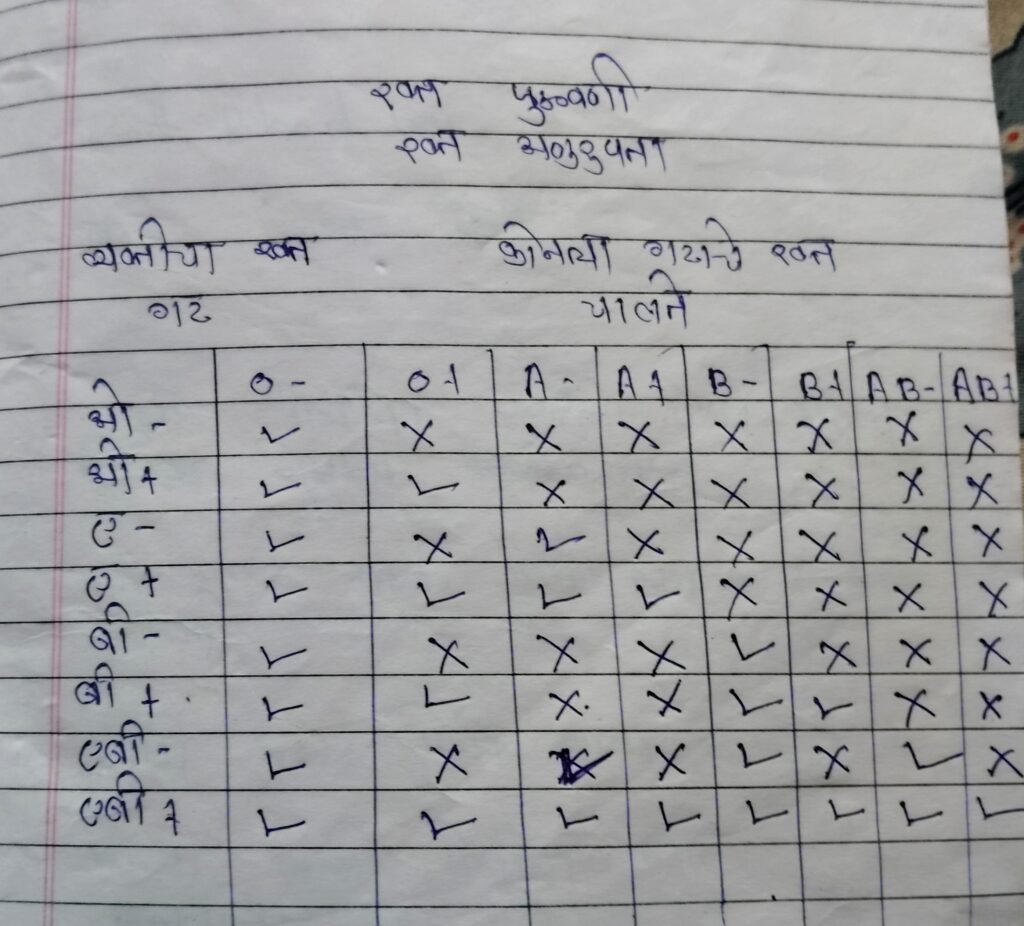 रक्त पुरवणी
रक्त अनुरुपता
व्यक्तीचा रक्त कोनत्या गटाचे रक्त
गट चालते
O - O + A - A + B - B + AB - AB +
ओ - ✓ × × × × × × ×
ओ + ✓ ✓ × × × × × ×
ए - ✓ × ✓ × × × × ×
ए + ✓ ✓ ✓ ✓ × × × ×
बी - ✓ × × × ✓ × × ×
बी + ✓ ✓ × × ✓ ✓ × ×
एबी - ✓ × ✓ × ✓ × ✓ ×
एबी + ✓ ✓ ✓ ✓ ✓ ✓ ✓ ✓